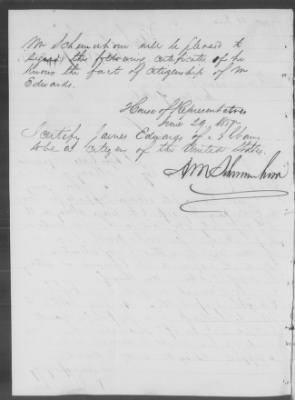 Mr Schumakow will be pleased to
sign the following certificate if he
knows the fact of citizenship of Mr
Edwards.
House of Representatives
June 20, 187
I certify James Edwards of Albany
to be a citizen of the United States.